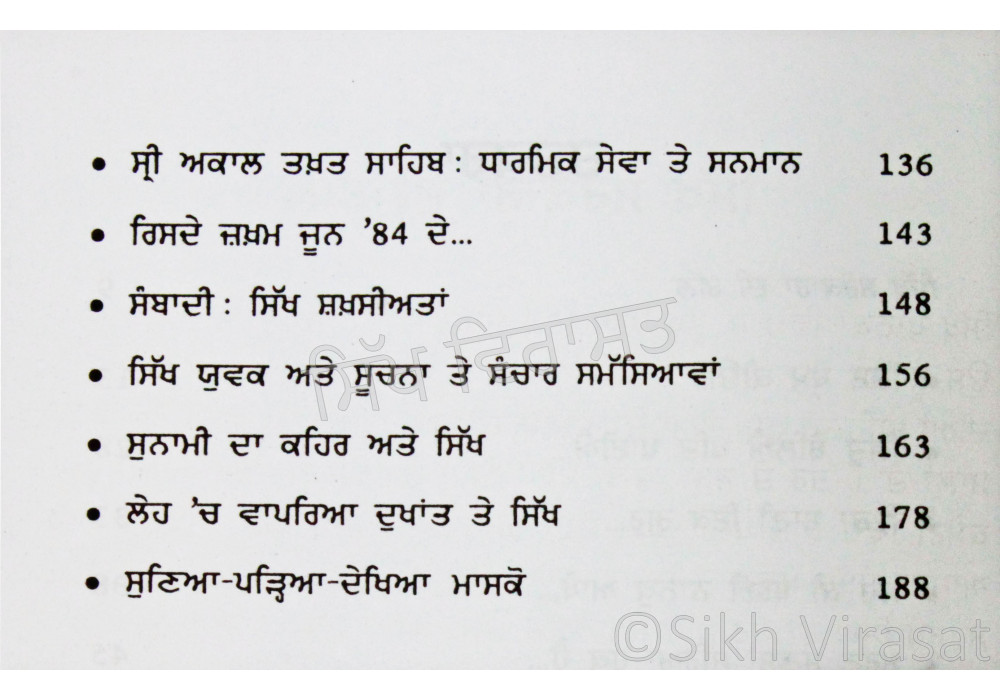 • ਸ੍ਰੀ ਅਕਾਲ ਤਖ਼ਤ ਸਾਹਿਬ : ਧਾਰਮਿਕ ਸੇਵਾ ਤੇ ਸਨਮਾਨ 136
• ਰਿਸਦੇ ਜ਼ਖ਼ਮ ਜੂਨ ’84 ਦੇ... 143
• ਸੰਬਾਦੀ : ਸਿੱਖ ਸ਼ਖ਼ਸੀਅਤਾਂ 148
• ਸਿੱਖ ਯੁਵਕ ਅਤੇ ਸੂਚਨਾ ਤੇ ਸੰਚਾਰ ਸਮੱਸਿਆਵਾਂ 156
• ਸੁਨਾਮੀ ਦਾ ਕਹਿਰ ਅਤੇ ਸਿੱਖ 163
• ਲੇਹ ’ਚ ਵਾਪਰਿਆ ਦੁਖਾਂਤ ਤੇ ਸਿੱਖ 178
• ਸੁਣਿਆ-ਪੜ੍ਹਿਆ-ਦੇਖਿਆ ਮਾਸਕੋ 188
ਸਿੱਖ ਵਿਰਾਸਤ
©Sikh Virasat